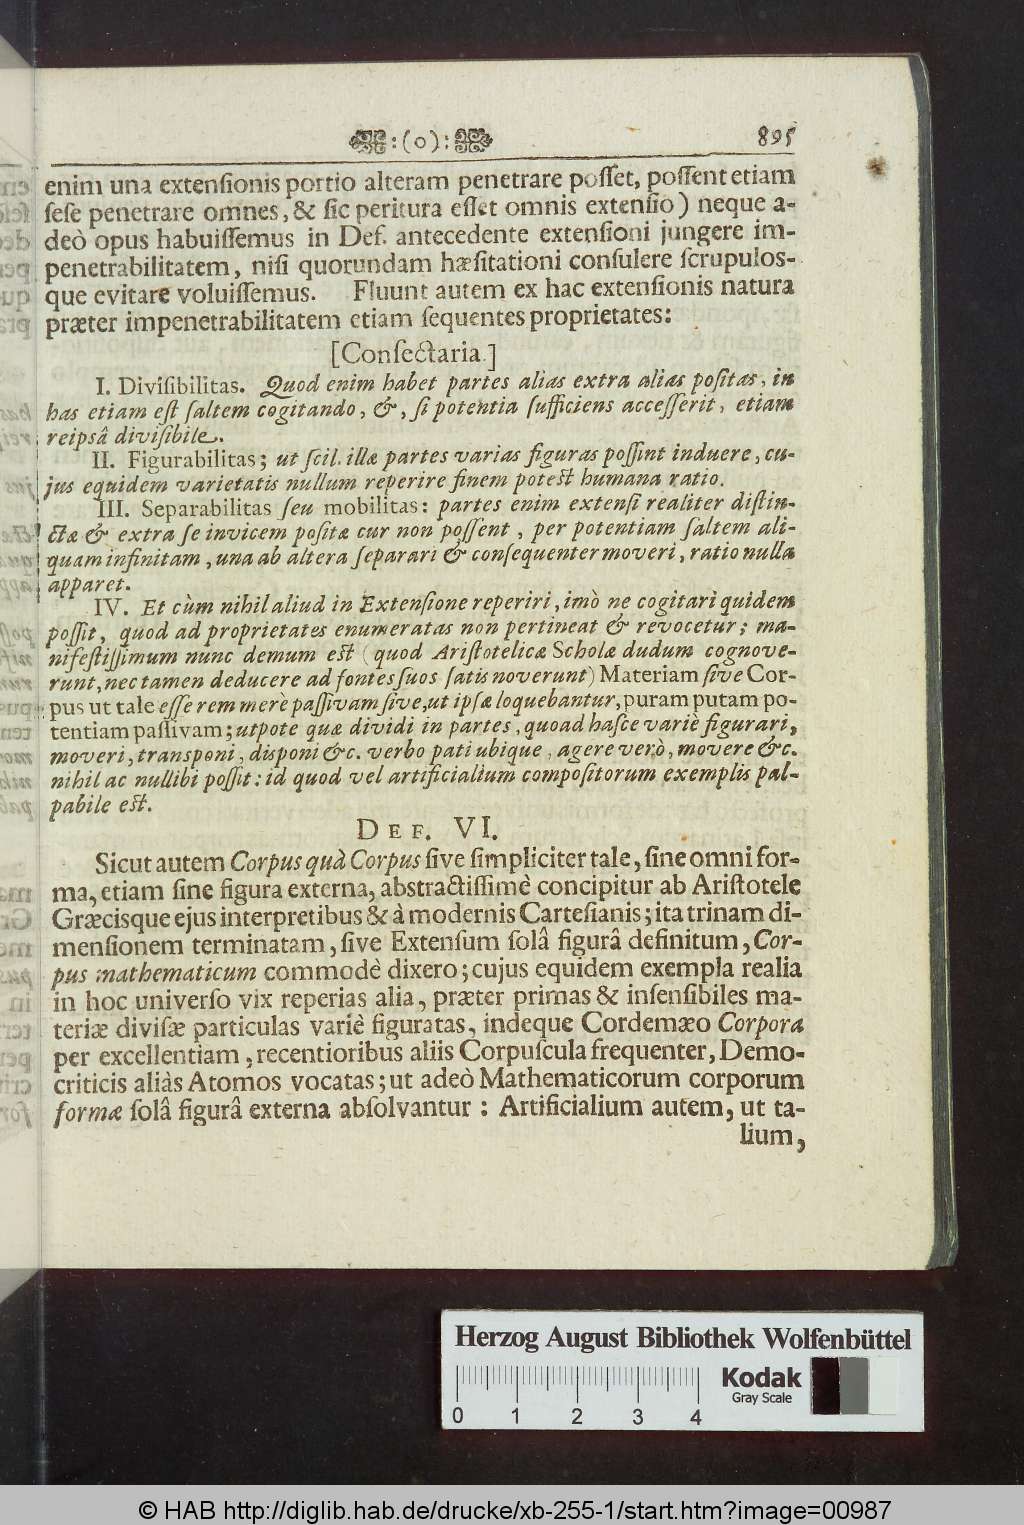 :(o): 895
enim una extenſionis portio alteram penetrare poſſet, poſſent etiam
ſeſe penetrare omnes, & ſic peritura eſſet omnis extenſio) neque a-
deò opus habuiſſemus in Def. antecedente extenſioni jungere im-
penetrabilitatem, niſi quorundam hæſitationi conſulere ſcrupulos-
que evitare voluiſſemus. Fluunt autem ex hac extenſionis natura
præter impenetrabilitatem etiam ſequentes proprietates:
[Conſectaria.]
I. Diviſibilitas. Quod enim habet partes alias extra alias poſitas, in
has etiam eſt ſaltem cogitando, &, ſi potentia ſufficiens acceſſerit, etiam
reipsâ diviſibile.
II. Figurabilitas; ut ſcil. illæ partes varias figuras poſſint induere, cu-
jus equidem varietatis nullum reperire finem poteſt humana ratio.
III. Separabilitas ſeu mobilitas: partes enim extenſi realiter diſtin-
ctæ & extra ſe invicem poſitæ cur non poſſent, per potentiam ſaltem ali-
quam infinitam, una ab altera ſeparari & conſequenter moveri, ratio nulla
apparet.
IV. Et cùm nihil aliud in Extenſione reperiri, imò ne cogitari quidem
poſſit, quod ad proprietates enumeratas non pertineat & revocetur; ma-
nifeſtiſſimum nunc demum eſt (quod Ariſtotelicæ Scholæ dudum cognove-
runt, nec tamen deducere ad fontes ſuos ſatis noverunt) Materiam ſive Cor-
pus ut tale eſſe rem merè paſſivam ſive, ut ipſæ loquebantur, puram putam po-
tentiam paſſivam; utpote quæ dividi in partes, quoad haſce variè figurari,
moveri, transponi, disponi &c. verbo pati ubique, agere verò, movere &c.
nihil ac nullibi poſſit: id quod vel artificialium compoſitorum exemplis pal-
pabile eſt.
DEF. VI.
Sicut autem Corpus quà Corpus ſive ſimpliciter tale, ſine omni for-
ma, etiam ſine figura externa, abſtractiſſimè concipitur ab Ariſtotele
Græcisque ejus interpretibus & à modernis Carteſianis; ita trinam di-
menſionem terminatam, ſive Extenſum ſolâ figurâ definitum, Cor-
pus mathematicum commodè dixero; cujus equidem exempla realia
in hoc univerſo vix reperias alia, præter primas & inſenſibiles ma-
teriæ diviſæ particulas variè figuratas, indeque Cordemæo Corpora
per excellentiam, recentioribus aliis Corpuſcula frequenter, Demo-
criticis aliàs Atomos vocatas; ut adeò Mathematicorum corporum
formæ ſolâ figurâ externa abſolvantur: Artificialium autem, ut ta-
lium,
Herzog August Bibliothek Wolfenbüttel
0 1 2 3 4
Kodak
Gray Scale
© HAB http://diglib.hab.de/drucke/xb-255-1/start.htm?image=00987